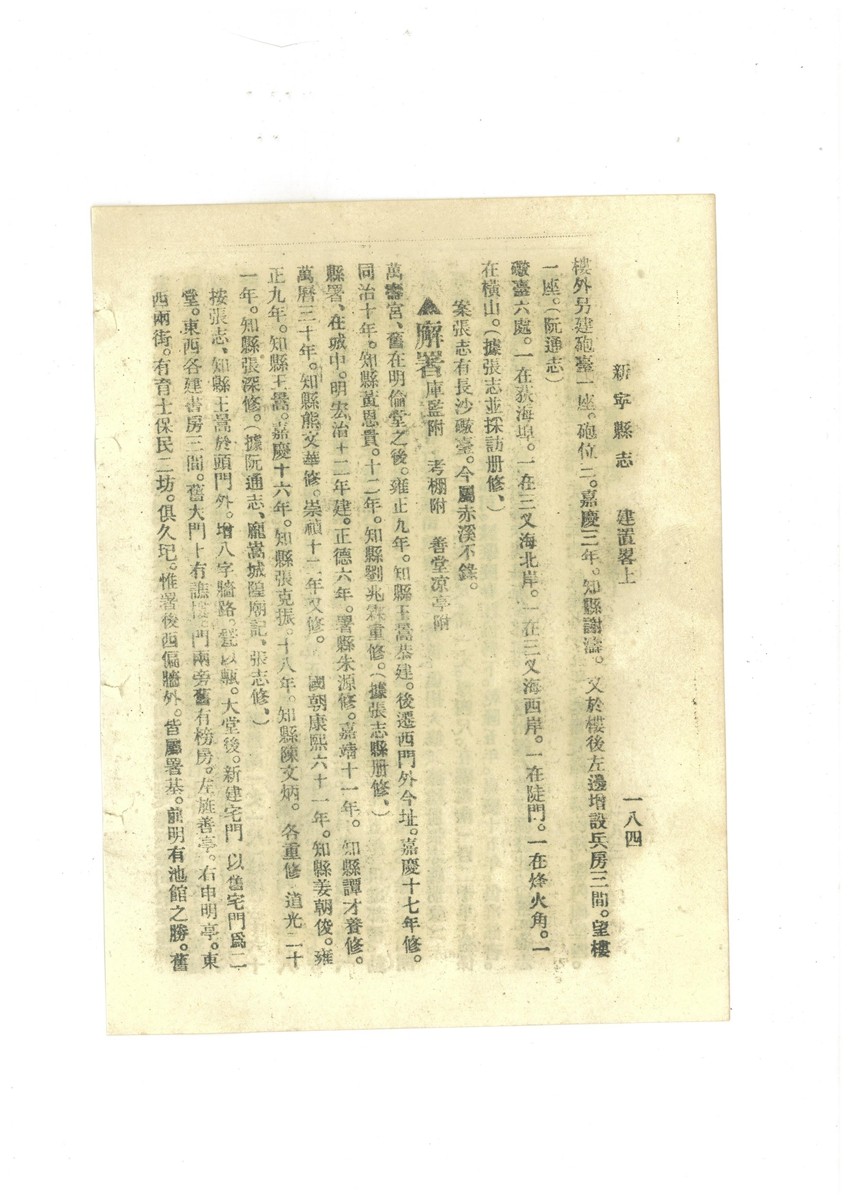 新寧縣志　建置畧上　一八四
樓外另建砲臺一座。砲位二。嘉慶三年。知縣謝濤。又於樓後左邊增設兵房三間。望樓
一座。（阮通志）
礮臺六處。一在荻海埠。一在三叉海北岸。一在三叉海西岸。一在陡門。一在烽火角。一
在橫山。（據張志並採訪册修、）
案張志有長沙礮臺。今屬赤溪不錄。
▲廨署 庫監附　考棚附　善堂凉亭附
萬壽宮、舊在明倫堂之後。雍正九年。知縣王暠恭建。後遷西門外今址。嘉慶十七年修。
同治十年。知縣黃恩貴。十二年。知縣劉兆霖重修。（據張志縣册修、）
縣署、在城中。明宏治十二年建。正德六年。署縣朱源修。嘉靖十一年。知縣譚才養修。
萬曆三十年。知縣熊文華修。崇禎十二年又修。　國朝康熙六十一年。知縣姜朝俊。雍
正九年。知縣王暠。嘉慶十六年。知縣張克振。十八年。知縣陳文炳。各重修　道光二十
一年。知縣張深修。（據阮通志、龐嵩城隍廟記、張志修、）
按張志、知縣王暠於頭門外。增八字牆路。甃以甎。大堂後。新建宅門　以舊宅門爲二
堂。東西各建書房三間。舊大門上有譙樓。門兩旁舊有榜房。左旌善亭。右申明亭。東
西兩街。有育士保民二坊。俱久圮。惟署後西偏牆外。皆屬署基。前明有池館之勝。舊